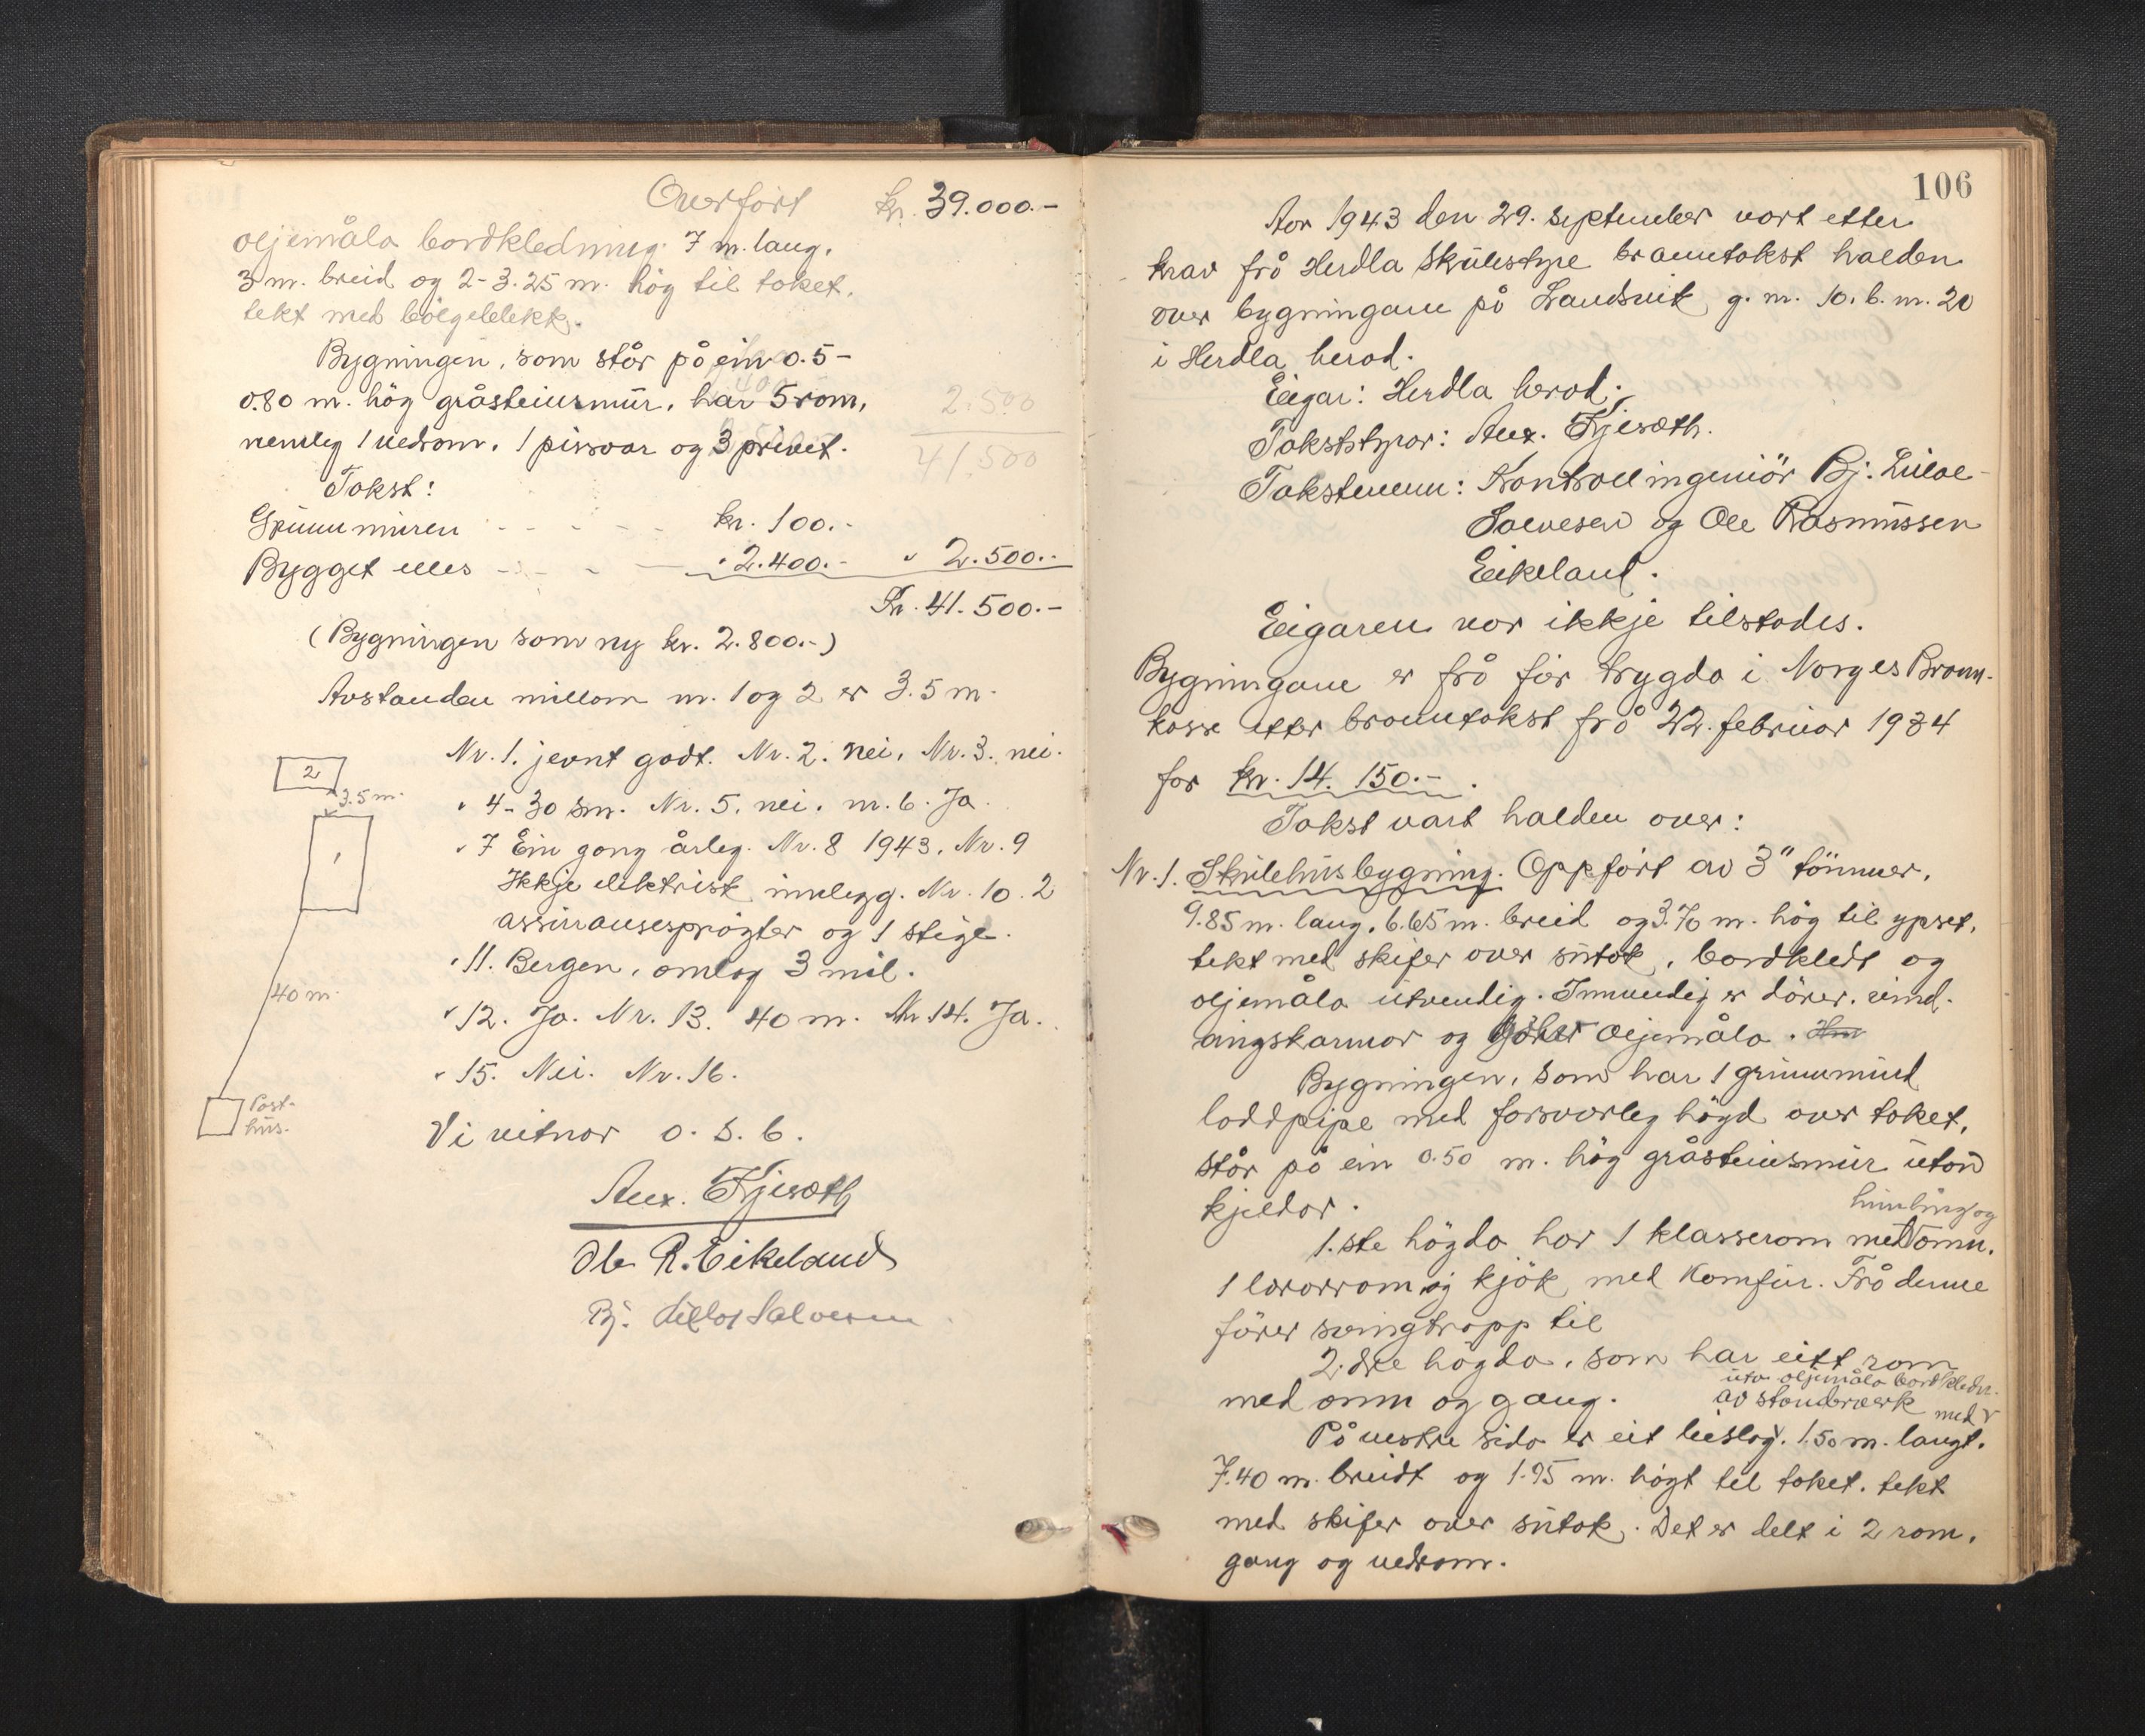 Overfört kr. 39.000.-
oljemåla bordkledning. 7 m. lang,
3 m. breid og 2-3.25 m. hög til taket,
tekt med bölgeblekk.
Bygningen, som står på ein 0.5-
0.80 m. hög gråsteinsmur, har 5 rom,
nemleg 1 vedrom, 1 pissoar og 3 privet.
2.500
41.500
Takst:
Grunnmuren - - - - - kr. 100.-
Bygget elles - - - - " 2.400.- " 2.500.-
Kr. 41.500.-
(Bygningen som ny kr. 2.800.-)
Avstanden millom nr. 1 og 2 er 3.5 m.
Nr. 1. jevnt godt. Nr. 2. nei, Nr. 3. nei.
" 4- 30 sm. Nr. 5. nei. nr. 6. Ja.
" 7 Ein gong årleg. Nr. 8 1943. Nr. 9
Ikkje elektrisk innlegg. Nr. 10. 2
assuransesprögter og 1 stige.
" 11. Bergen, omlag 3 mil.
" 12. Ja. Nr. 13. 40 m. Nr 14. Ja.
" 15. Nei. Nr. 16.
2
3.5 m.
1
40 m.
Post-
hus.
Vi vitnar o. s. b.
Alex. Kjesæth
Ole R. Eikeland
Bj. Lilloe Salvesen
106
Aar 1943 den 29. september vart etter
krav frå Herdla Skulestyre branntakst halden
over bygningane på Landsvik g. nr. 10. b. nr. 20
i Herdla herad.
Eigar: Herdla herad.
Takststyrar: Alex. Kjesæth.
Takstmenn: Kontrollingeniör Bj. Lilloe-
Salvesen og Ole Rasmussen
Eikeland.
Eigaren var ikkje tilstades.
Bygningane er frå för trygda i Norges Brann-
kasse etter branntakst frå 22. februar 1934
for kr. 14.150.-.
Takst vart halden over:
Nr. 1. Skulehusbygning. Oppfört av 3" tömmer,
9.85 m. lang, 6.65 m. breid og 3.70 m. hög til ypset,
tekt med skifer over sutak, bordkledt og
oljemåla utvendig. Innvendig er dörer, vind-
augskarmar og golver oljemåla.
Bygningen, som har 1 grunnmurt
loddpipe med forsvarleg högd over taket,
står på ein 0.50 m. hög gråsteinsmur utan
kjellar.
himling og
1.ste högda har 1 klasserom med omn,
1 lærarrom og kjök med komfur. Frå denne
förer svingtrapp til
2.dre högda, som har eitt rom
med omn og gang.
utv. oljemåla bordkledn.
av standerverk med
På vestre sida er eit bislag, 1.50 m. langt,
7.40 m. breidt og 1.95 m. högt til taket, tekt
med skifer over sutak. Det er delt i 2 rom,
gang og vedrom.